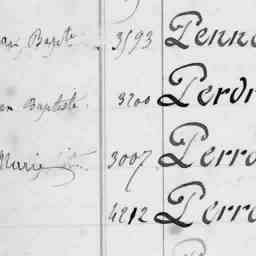 Bapte 3593 Penn
en Baptiste. 3200 Perdr
Marie 3007 Perr
4212 Perr